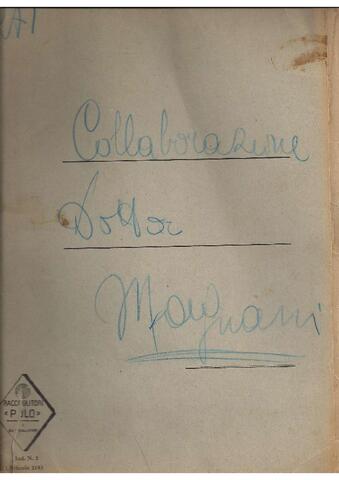 Collaborazione
Dottor
Magnani
RACCOGLITORI
« P LO »
Ind. N. 2